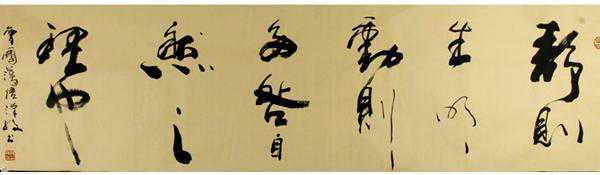 靜則
生明
動則
多咎自
然之
理也
曾國藩語